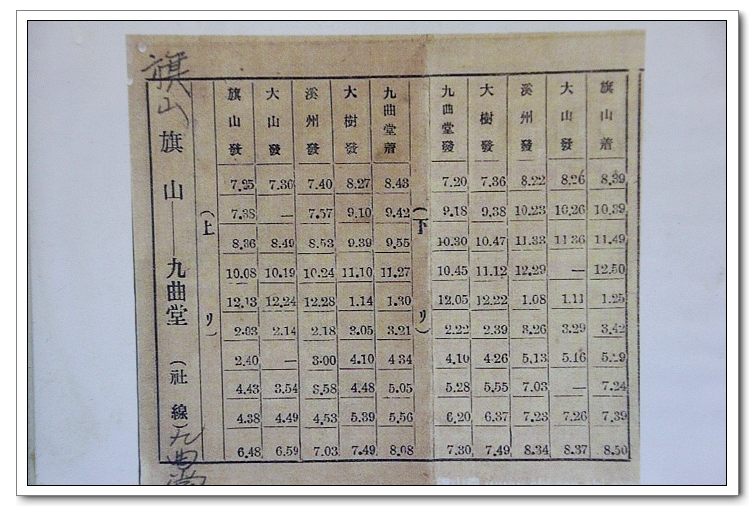 旗山
旗山——九曲堂（社線）
九曲堂
（上リ）
旗山發 大山發 溪州發 大樹發 九曲堂着
7.25 7.30 7.40 8.27 8.43
7.38 — 7.57 9.10 9.42
8.36 8.49 8.53 9.39 9.55
10.08 10.19 10.24 11.10 11.27
12.13 12.24 12.28 1.14 1.30
2.03 2.14 2.18 3.05 3.21
2.40 — 3.00 4.10 4.34
4.43 3.54 3.58 4.48 5.05
4.38 4.49 4.53 5.39 5.56
6.48 6.59 7.03 7.49 8.08
（下リ）
九曲堂發 大樹發 溪州發 大山發 旗山着
7.20 7.36 8.22 8.26 8.39
9.18 9.38 10.23 10.26 10.39
10.30 10.47 11.33 11.36 11.49
10.45 11.12 12.29 — 12.50
12.05 12.22 1.08 1.11 1.25
2.22 2.39 3.26 3.29 3.42
4.10 4.26 5.13 5.16 5.29
5.28 5.55 7.03 — 7.24
6.20 6.37 7.23 7.26 7.39
7.30 7.49 8.34 8.37 8.50